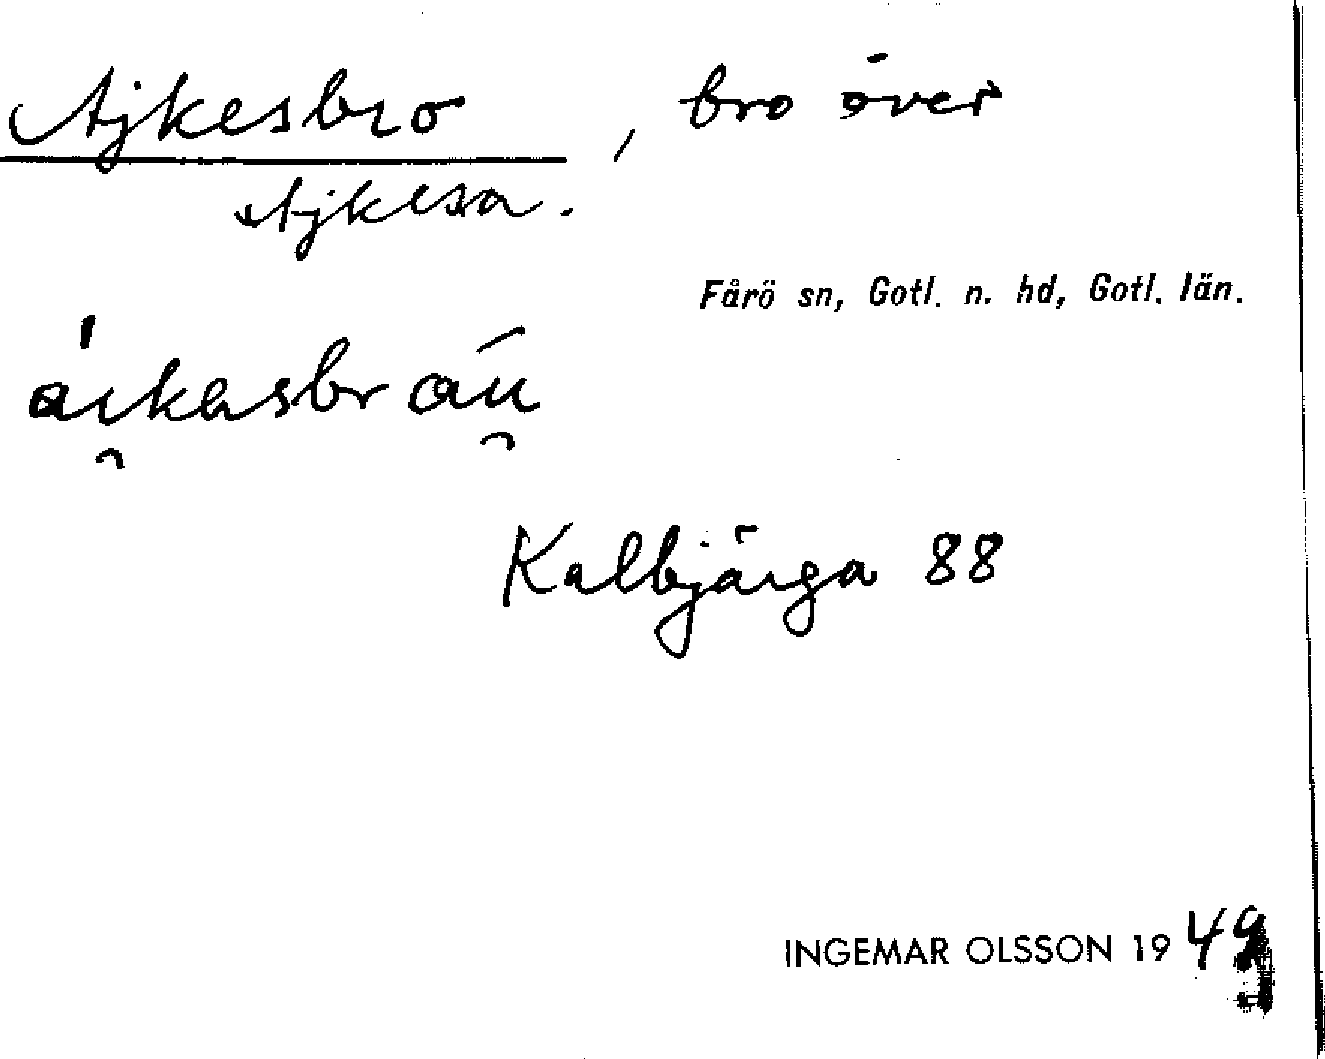 Ajkesbro, bro över
Ajkesa.
Fårö sn, Gotl. n. hd, Gotl. län.
Kalbjärga 88
INGEMAR OLSSON 1949